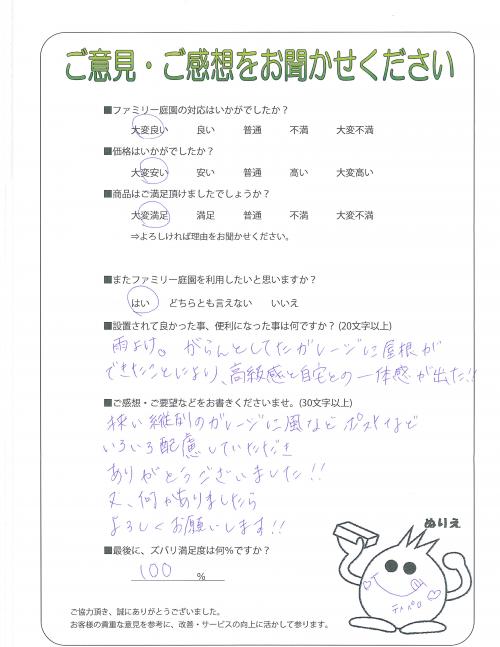 ご意見・ご感想をお聞かせください
■ファミリー庭園の対応はいかがでしたか？
大変良い 良い 普通 不満 大変不満
■価格はいかがでしたか？
大変安い 安い 普通 高い 大変高い
■商品はご満足頂けましたでしょうか？
大変満足 満足 普通 不満 大変不満
⇒よろしければ理由をお聞かせください。
■またファミリー庭園を利用したいと思いますか？
はい どちらとも言えない いいえ
■設置されて良かった事、便利になった事は何ですか？ (20文字以上)
雨よけ。がらんとしてたガレージに屋根が
できたことにより、高級感と自宅との一体感が出た!!
■ご感想・ご要望などをお書きくださいませ。(30文字以上)
狭い縦列のガレージに風などポストなど
いろいろ配慮していただき
ありがとうございました!!
又、何かありましたら
よろしくお願いします!!
■最後に、ズバリ満足度は何%ですか？
100 %
ぬりえ
ご協力頂き、誠にありがとうございました。
お客様の貴重な意見を参考に、改善・サービスの向上に活かして参ります。